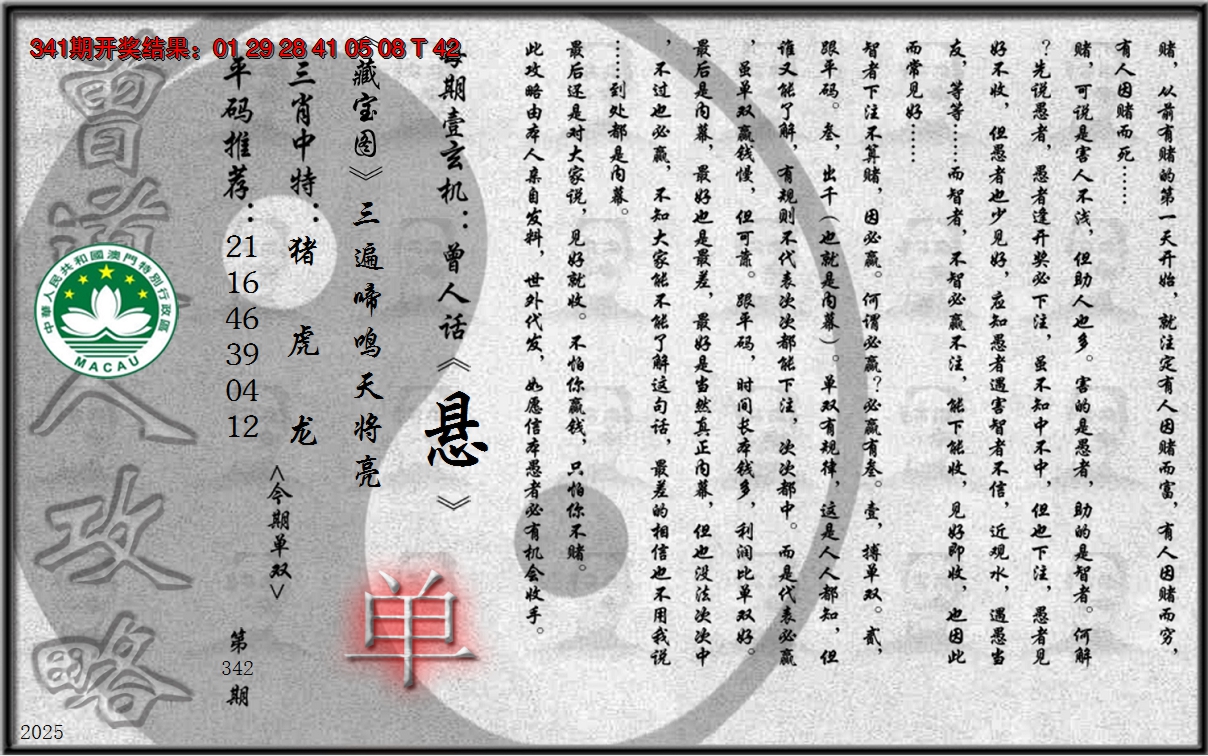 341期开奖结果：01 29 28 41 05 08 T 42
赌，从前有赌的第一天开始，就注定有人因赌而富，有人因赌而穷，
有人因赌而死……
赌，可说是害人不浅，但助人也多。害的是愚者，助的是智者。何解
？先说愚者，愚者逢开奖必下注，虽不知中不中，但也下注，愚者见
好不收，但愚者也少见好，应知愚者遇害智者不信，近观水，遇愚当
友，等等……而智者，不智必赢不注，能下能收，见好即收，也因此
而常见好……
智者下注不算赌，因必赢。何谓必赢？必赢有叁。壹，搏单双。贰，
跟平码。叁，出千（也就是内幕）。单双有规律，这是人人都知，但
谁又能了解，有规则不代表次次都能下注，次次都中。而是代表必赢
，虽单双赢钱慢，但可靠。跟平码，时间长本钱多，利润比单双好。
最后是内幕，最好也是最差，最好是当然真正内幕，但也没法次次中
，不过也必赢，不知大家能不能了解这句话，最差的相信也不用我说
……到处都是内幕。
最后还是对大家说，见好就收。不怕你赢钱，只怕你不赌。
此攻略由本人亲自发料，世外代发，如愿信本愚者必有机会收手。
每期壹玄机：曾人话《悬》
《藏宝图》三遍啼鸣天将亮
单
三肖中特：猪 虎 龙
<今期单双>
平码推荐：21 16 46 39 04 12
第342期
曾道人攻略
中華人民共和國澳門特別行政區
MACAU
2025